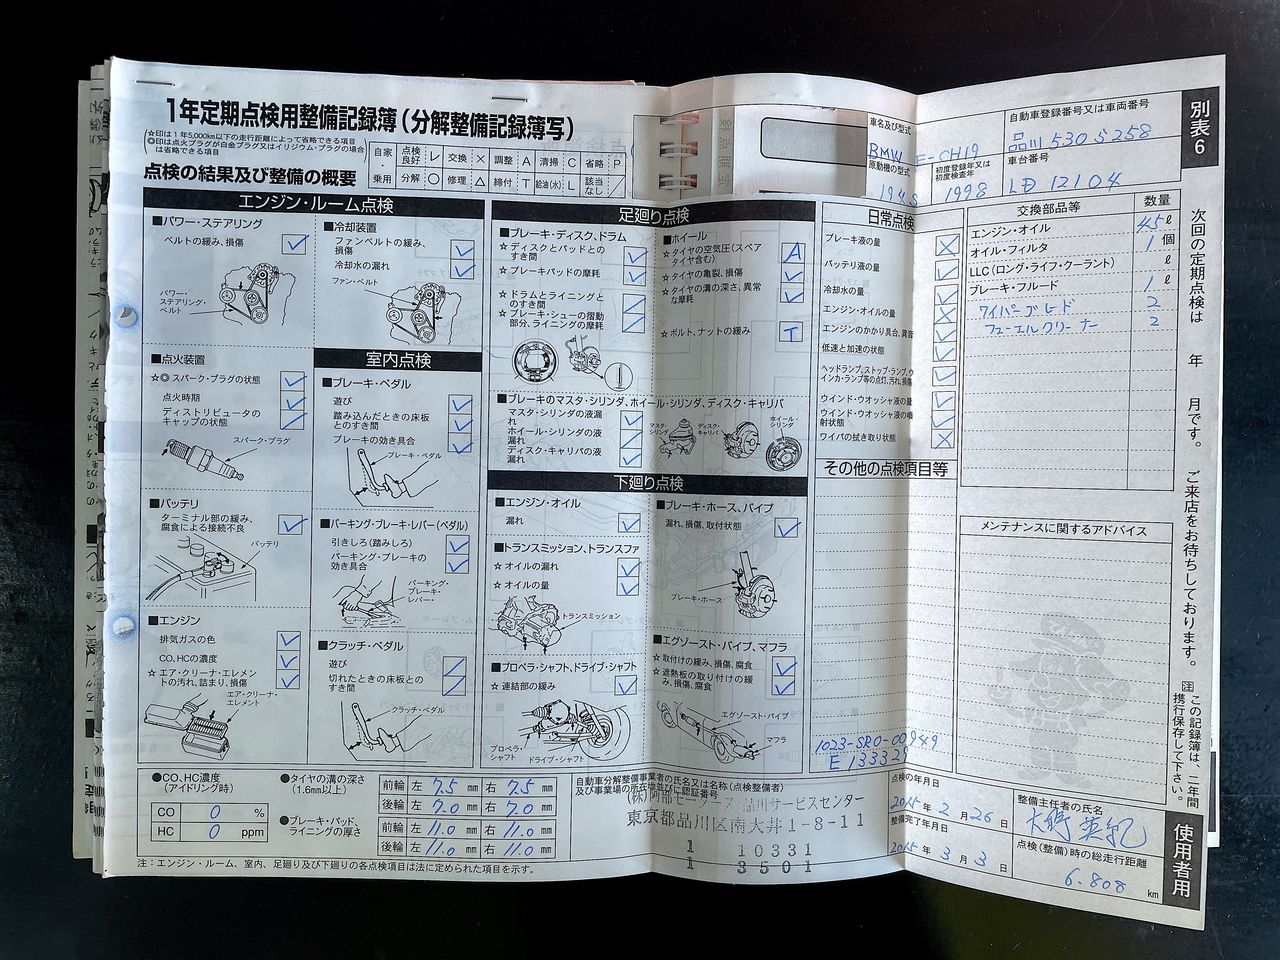 1年定期点検用整備記録簿(分解整備記録簿写)
☆印は1年5,000km以下の走行距離によって省略できる項目
◎印は点火プラグが白金プラグ又はイリジウム・プラグの場合は省略できる項目
自家・乗用
点検良好 レ 交換 × 調整 A 清掃 C 省略 P
分解 ○ 修理 △ 締付 T 給油(水) L 該当なし /
点検の結果及び整備の概要
車名及び型式
BMW E-CH19
原動機の型式
194S
初度登録年又は初度検査年
1998
自動車登録番号又は車両番号
品川 530 S 258
車台番号
LD 12104
別表6
エンジン・ルーム点検
■パワー・ステアリング
ベルトの緩み、損傷
パワー・ステアリング・ベルト
■冷却装置
ファンベルトの緩み、損傷
冷却水の漏れ
ファン・ベルト
■点火装置
☆◎スパーク・プラグの状態
点火時期
ディストリビュータのキャップの状態
スパーク・プラグ
■バッテリ
ターミナル部の緩み、腐食による接続不良
バッテリ
■エンジン
排気ガスの色
CO、HCの濃度
☆エア・クリーナ・エレメントの汚れ、詰まり、損傷
エア・クリーナ・エレメント
室内点検
■ブレーキ・ペダル
遊び
踏み込んだときの床板とのすき間
ブレーキの効き具合
ブレーキ・ペダル
■パーキング・ブレーキ・レバー(ペダル)
引きしろ(踏みしろ)
パーキング・ブレーキの効き具合
パーキング・ブレーキ・レバー・
■クラッチ・ペダル
遊び
切れたときの床板とのすき間
クラッチ・ペダル
足廻り点検
■ブレーキ・ディスク、ドラム
☆ディスクとパッドとのすき間
☆ブレーキパッドの摩耗
☆ドラムとライニングとのすき間
☆ブレーキ・シューの摺動部分、ライニングの摩耗
■ホイール
☆タイヤの空気圧(スペアタイヤ含む) A
☆タイヤの亀裂、損傷
☆タイヤの溝の深さ、異常な摩耗
☆ボルト、ナットの緩み T
■ブレーキのマスタ・シリンダ、ホイール・シリンダ、ディスク・キャリパ
マスタ・シリンダの液漏れ
ホイール・シリンダの液漏れ
ディスク・キャリパの液漏れ
マスタ・シリンダ
ディスク・キャリパ
ホイール・シリンダ
下廻り点検
■エンジン・オイル
漏れ
■トランスミッション、トランスファ
☆オイルの漏れ
☆オイルの量
トランスミッション
■プロペラ・シャフト、ドライブ・シャフト
☆連結部の緩み
プロペラ・シャフト
ドライブ・シャフト
■ブレーキ・ホース、パイプ
漏れ、損傷、取付状態
ブレーキ・ホース
■エグゾースト・パイプ、マフラ
☆取付けの緩み、損傷、腐食
☆遮熱板の取り付けの緩み、損傷、腐食
エグゾースト・パイプ
マフラ
日常点検
ブレーキ液の量
バッテリ液の量
冷却水の量
エンジン・オイルの量
エンジンのかかり具合、異音
低速と加速の状態
ヘッドランプ、ストップ・ランプ、ウインカ・ランプ等の点灯、汚れ、損傷
ウインド・ウオッシャ液の量
ウインド・ウオッシャ液の噴射状態
ワイパの拭き取り状態
その他の点検項目等
1023-SR0-00949
E 133329
交換部品等 数量
エンジン・オイル 4.5 ℓ
オイル・フィルタ 1 個
LLC(ロング・ライフ・クーラント) ℓ
ブレーキ・フルード 1 ℓ
ワイパーブレード 2
フューエルクリーナー 2
メンテナンスに関するアドバイス
次回の定期点検は 年 月です。 ご来店をお待ちしております。
注 この記録簿は、二年間携行保存して下さい。
使用者用
●CO、HC濃度(アイドリング時)
CO 0 %
HC 0 ppm
●タイヤの溝の深さ(1.6mm以上)
前輪 左 7.5 mm 右 7.5 mm
後輪 左 7.0 mm 右 7.0 mm
●ブレーキ・パッド、ライニングの厚さ
前輪 左 11.0 mm 右 11.0 mm
後輪 左 11.0 mm 右 11.0 mm
注:エンジン・ルーム、室内、足廻り及び下廻りの各点検項目は法に定められた項目を示す。
自動車分解整備事業者の氏名又は名称(点検整備者)及び事業場の所在地並びに認証番号
(株)阿部モータース 品川サービスセンター
東京都品川区南大井1-8-11
1 10331
1 3501
点検の年月日
2015年 2月 26日
整備完了年月日
2015年 3月 3日
整備主任者の氏名
点検(整備)時の総走行距離
6,808 km